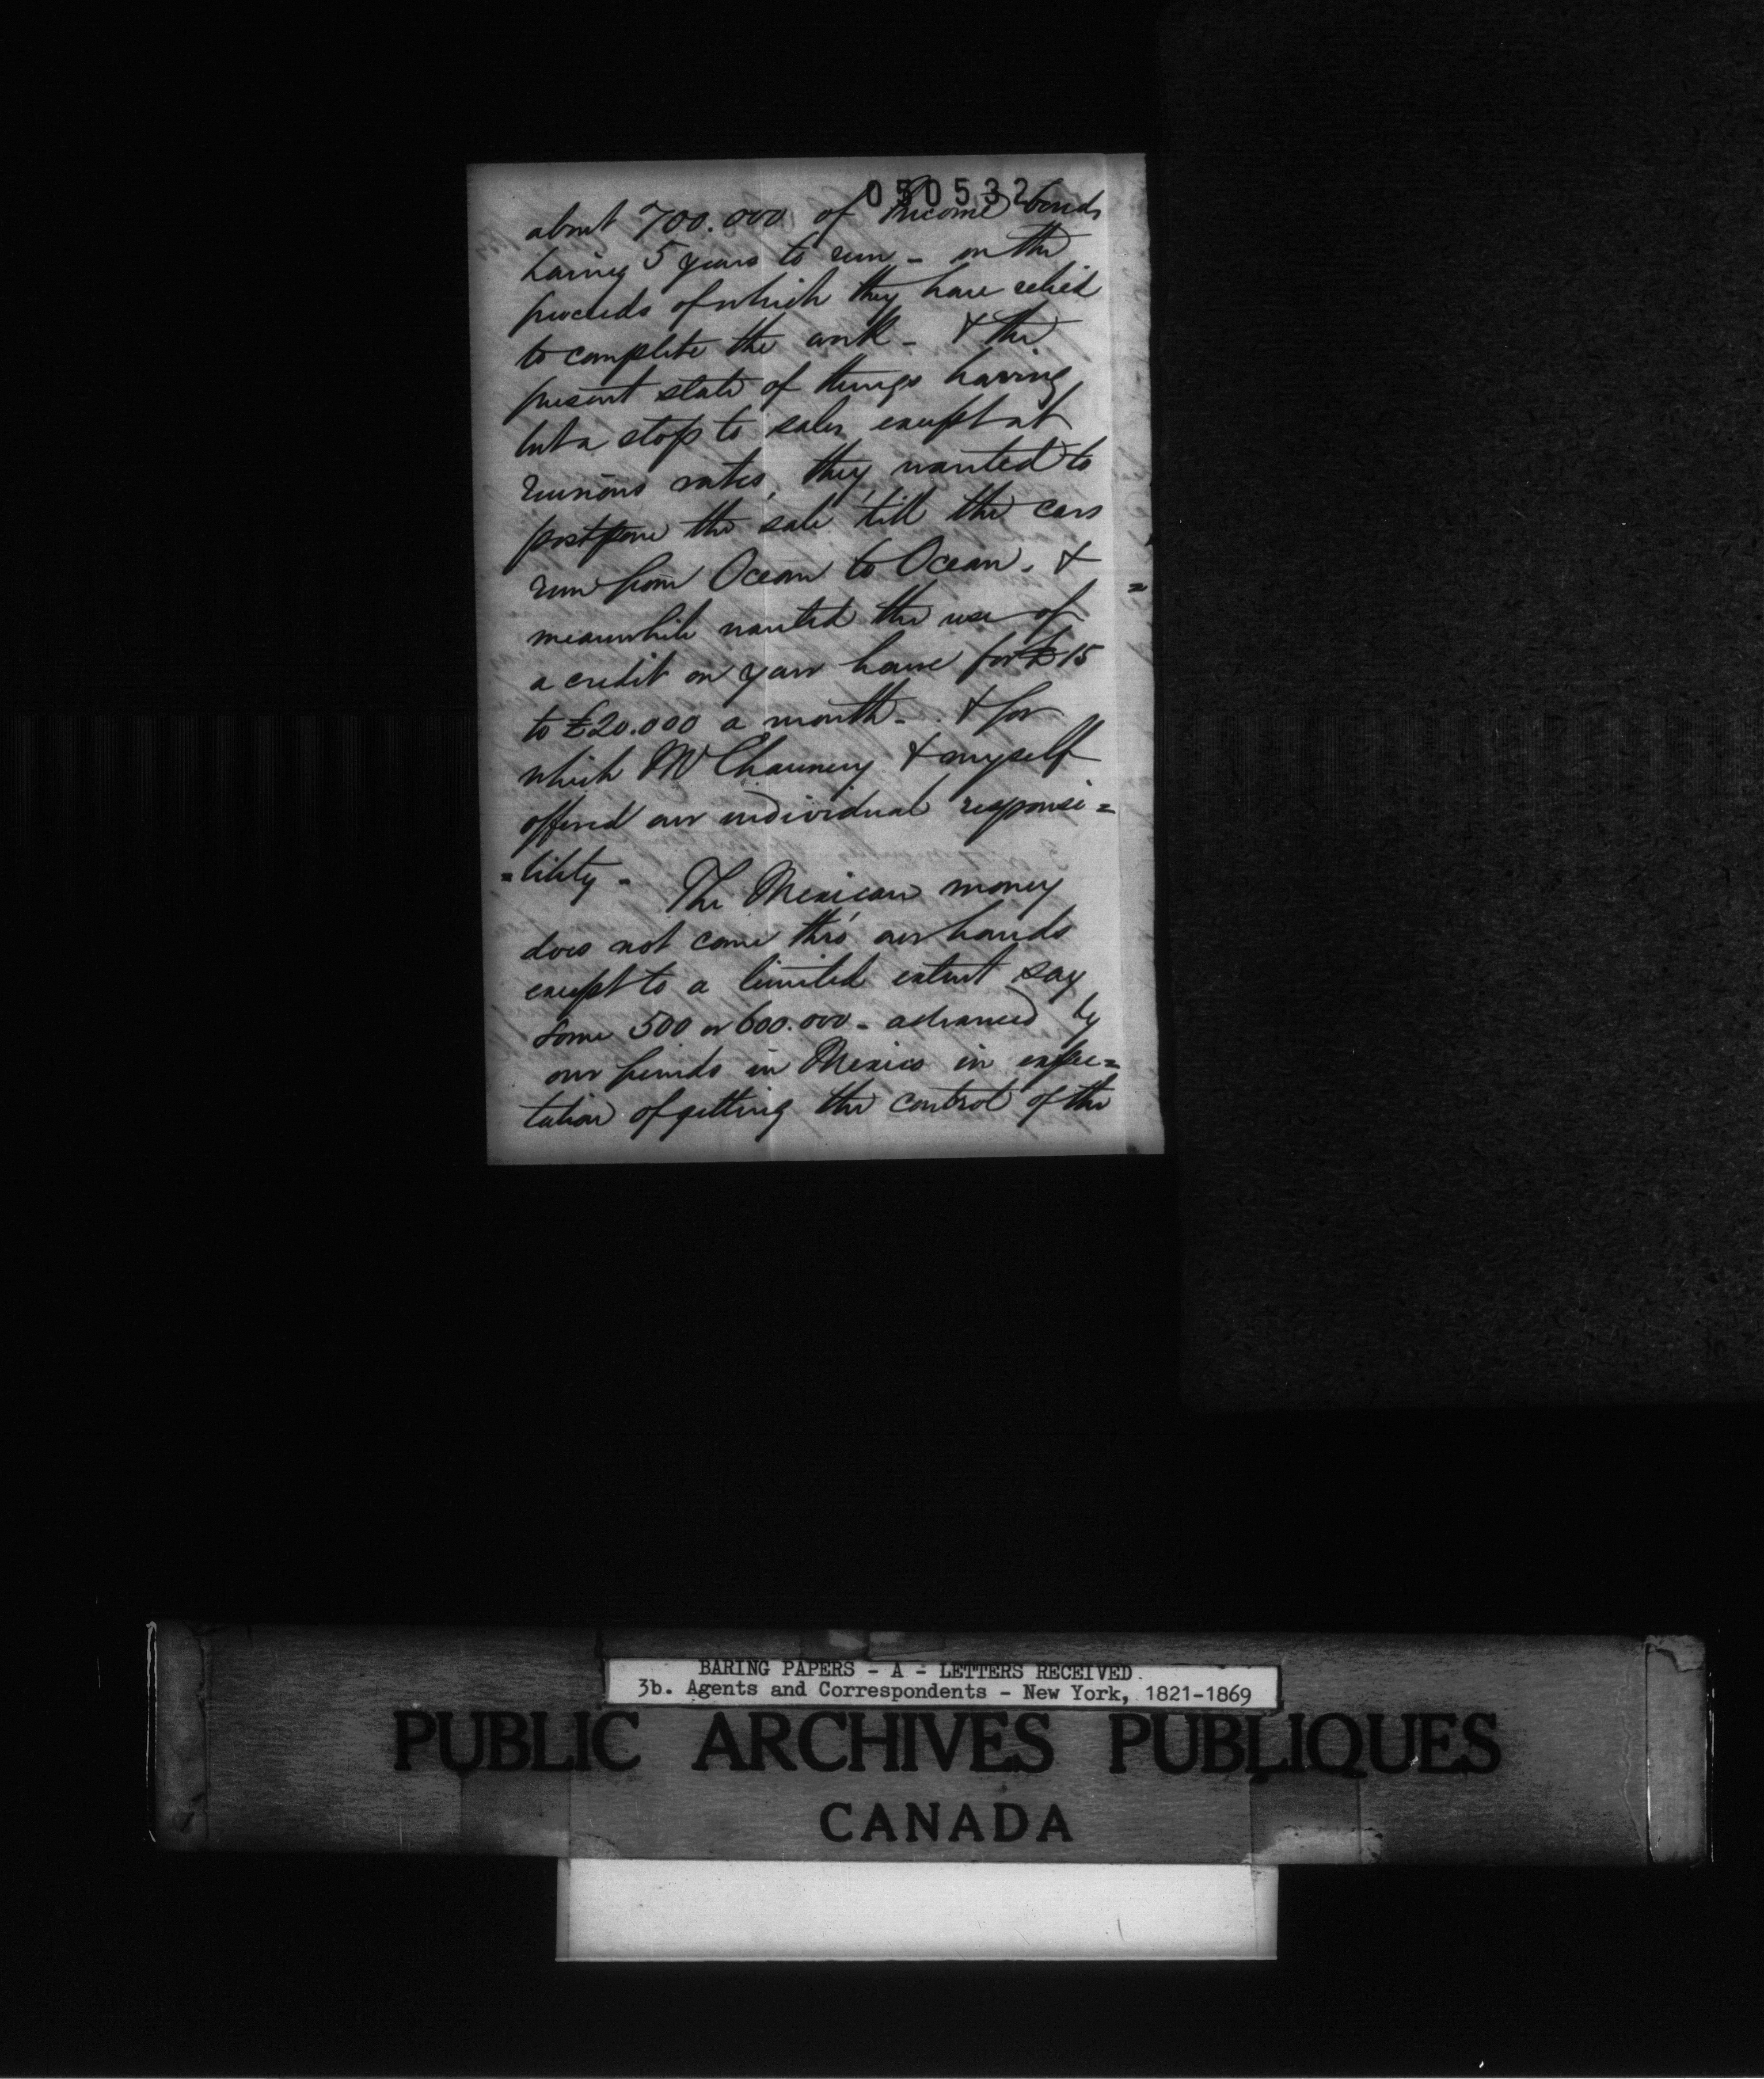 050532
about 700.000 of Income bonds
having 5 years to run - on the
proceeds of which they have relied
to complete the work - & the
present state of things having
put a stop to sales except at
ruinous rates, they wanted to
postpone the sale till the cars
run from Ocean to Ocean. &
meanwhile wanted the use of
a credit on your house for £15
to £20.000 a month - & for
which Mr Chauncey & myself
offered our individual responsi=
=bility - The Mexican money
does not come thro' our hands
except to a limited extent say
some 500 or 600.000 - advanced by
our friends in Mexico in expec=
tation of getting the control of the
BARING PAPERS - A - LETTERS RECEIVED
3b. Agents and Correspondents - New York, 1821-1869
PUBLIC ARCHIVES PUBLIQUES
CANADA